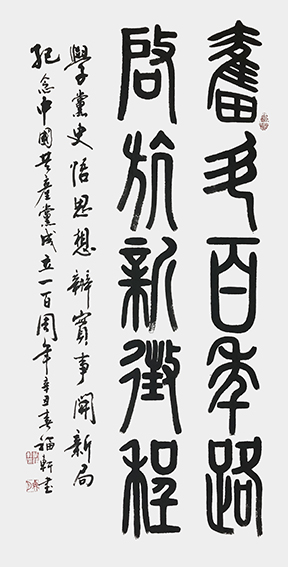 奮斗百年路
启航新徵程
學黨史悟思想辦實事開新局
紀念中國共產黨成立一百周年辛丑春福軒書